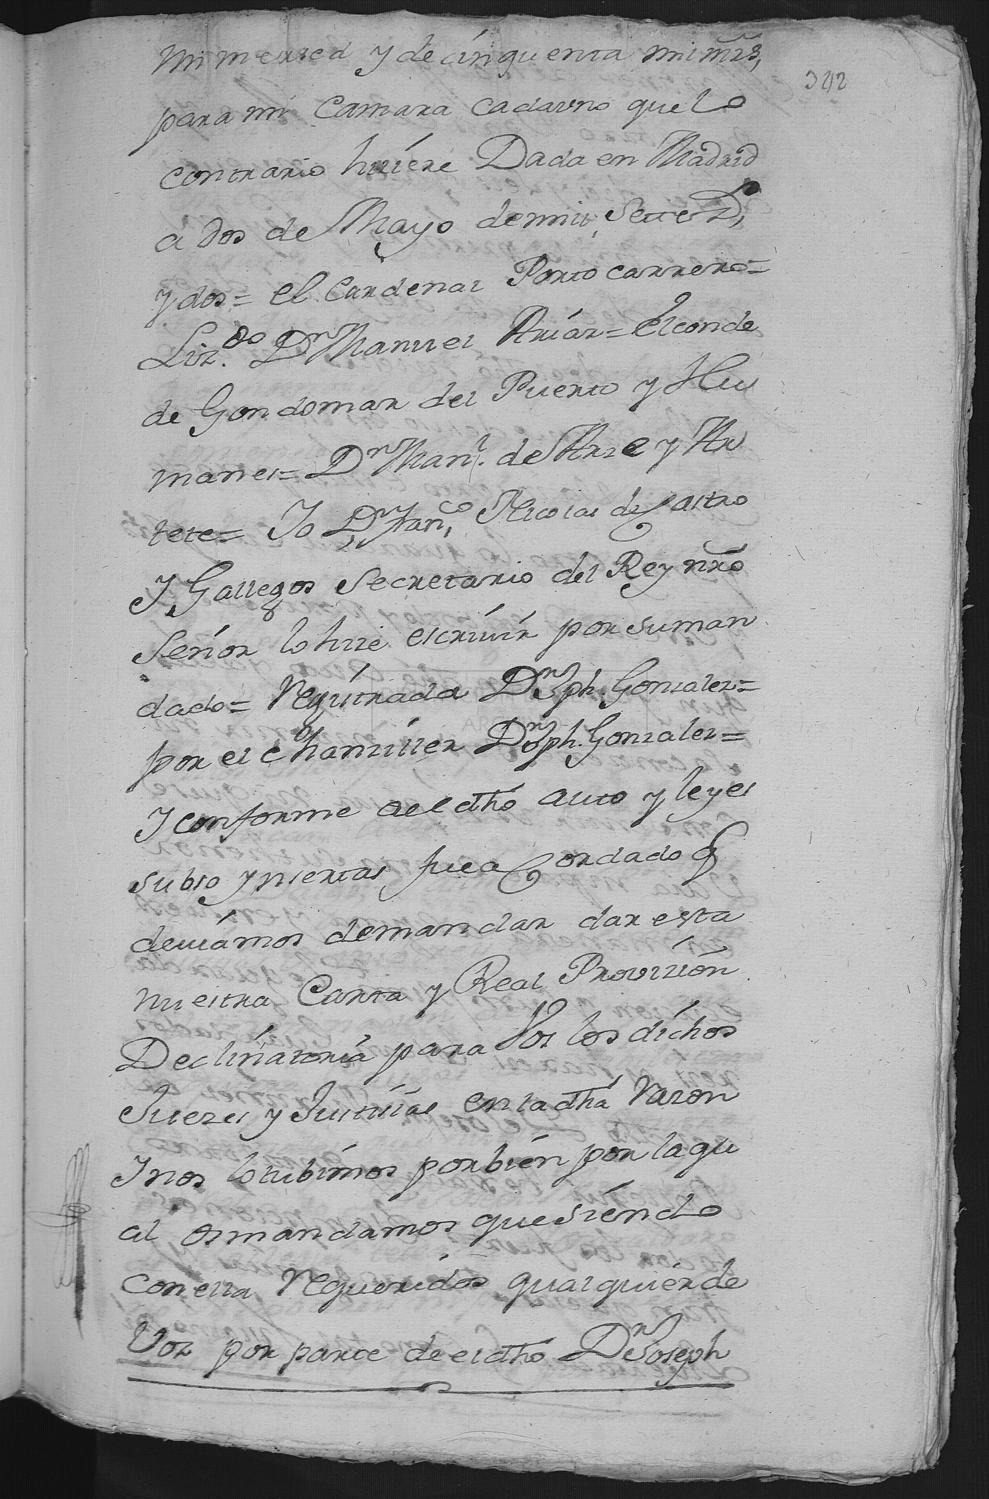 342
mi merced y de cinquenta mil mrs,
para mi Camara cadauno quelo
contrario hiziere Dada en Madrid
a Dos de Mayo demill, Setez.s,
y dos= el Cardenal Porto carrero=
Liz.do Dn Manuel Arias= el conde
de Gondomar del Puerto y Hu
manes= Dn Man.l de Arze y As
tete= Yo Dn Fran.co Nicolas de Castro
Y Gallegos Secretario del Rey nrõ
Señor lo hize escriuir por suman
dado= Rexistrada Dn Jph Gonzalez=
por el Chanziller Dn Jph. Gonzalez=
Y conforme aeel dhõ auto y leyes
suso ynsertas fue aCordado q
deuiamos demandar dar esta
nuestra Carta y Real Provizion
Declinatoria para Vos los dichos
Juezes y Justizias en la dhã Razon
Y nos lo tubimos por bien por la qu
al os mandamos que siendo
con ella Requeridos qualquier de
Vos por parte de el dhõ Dn Joseph